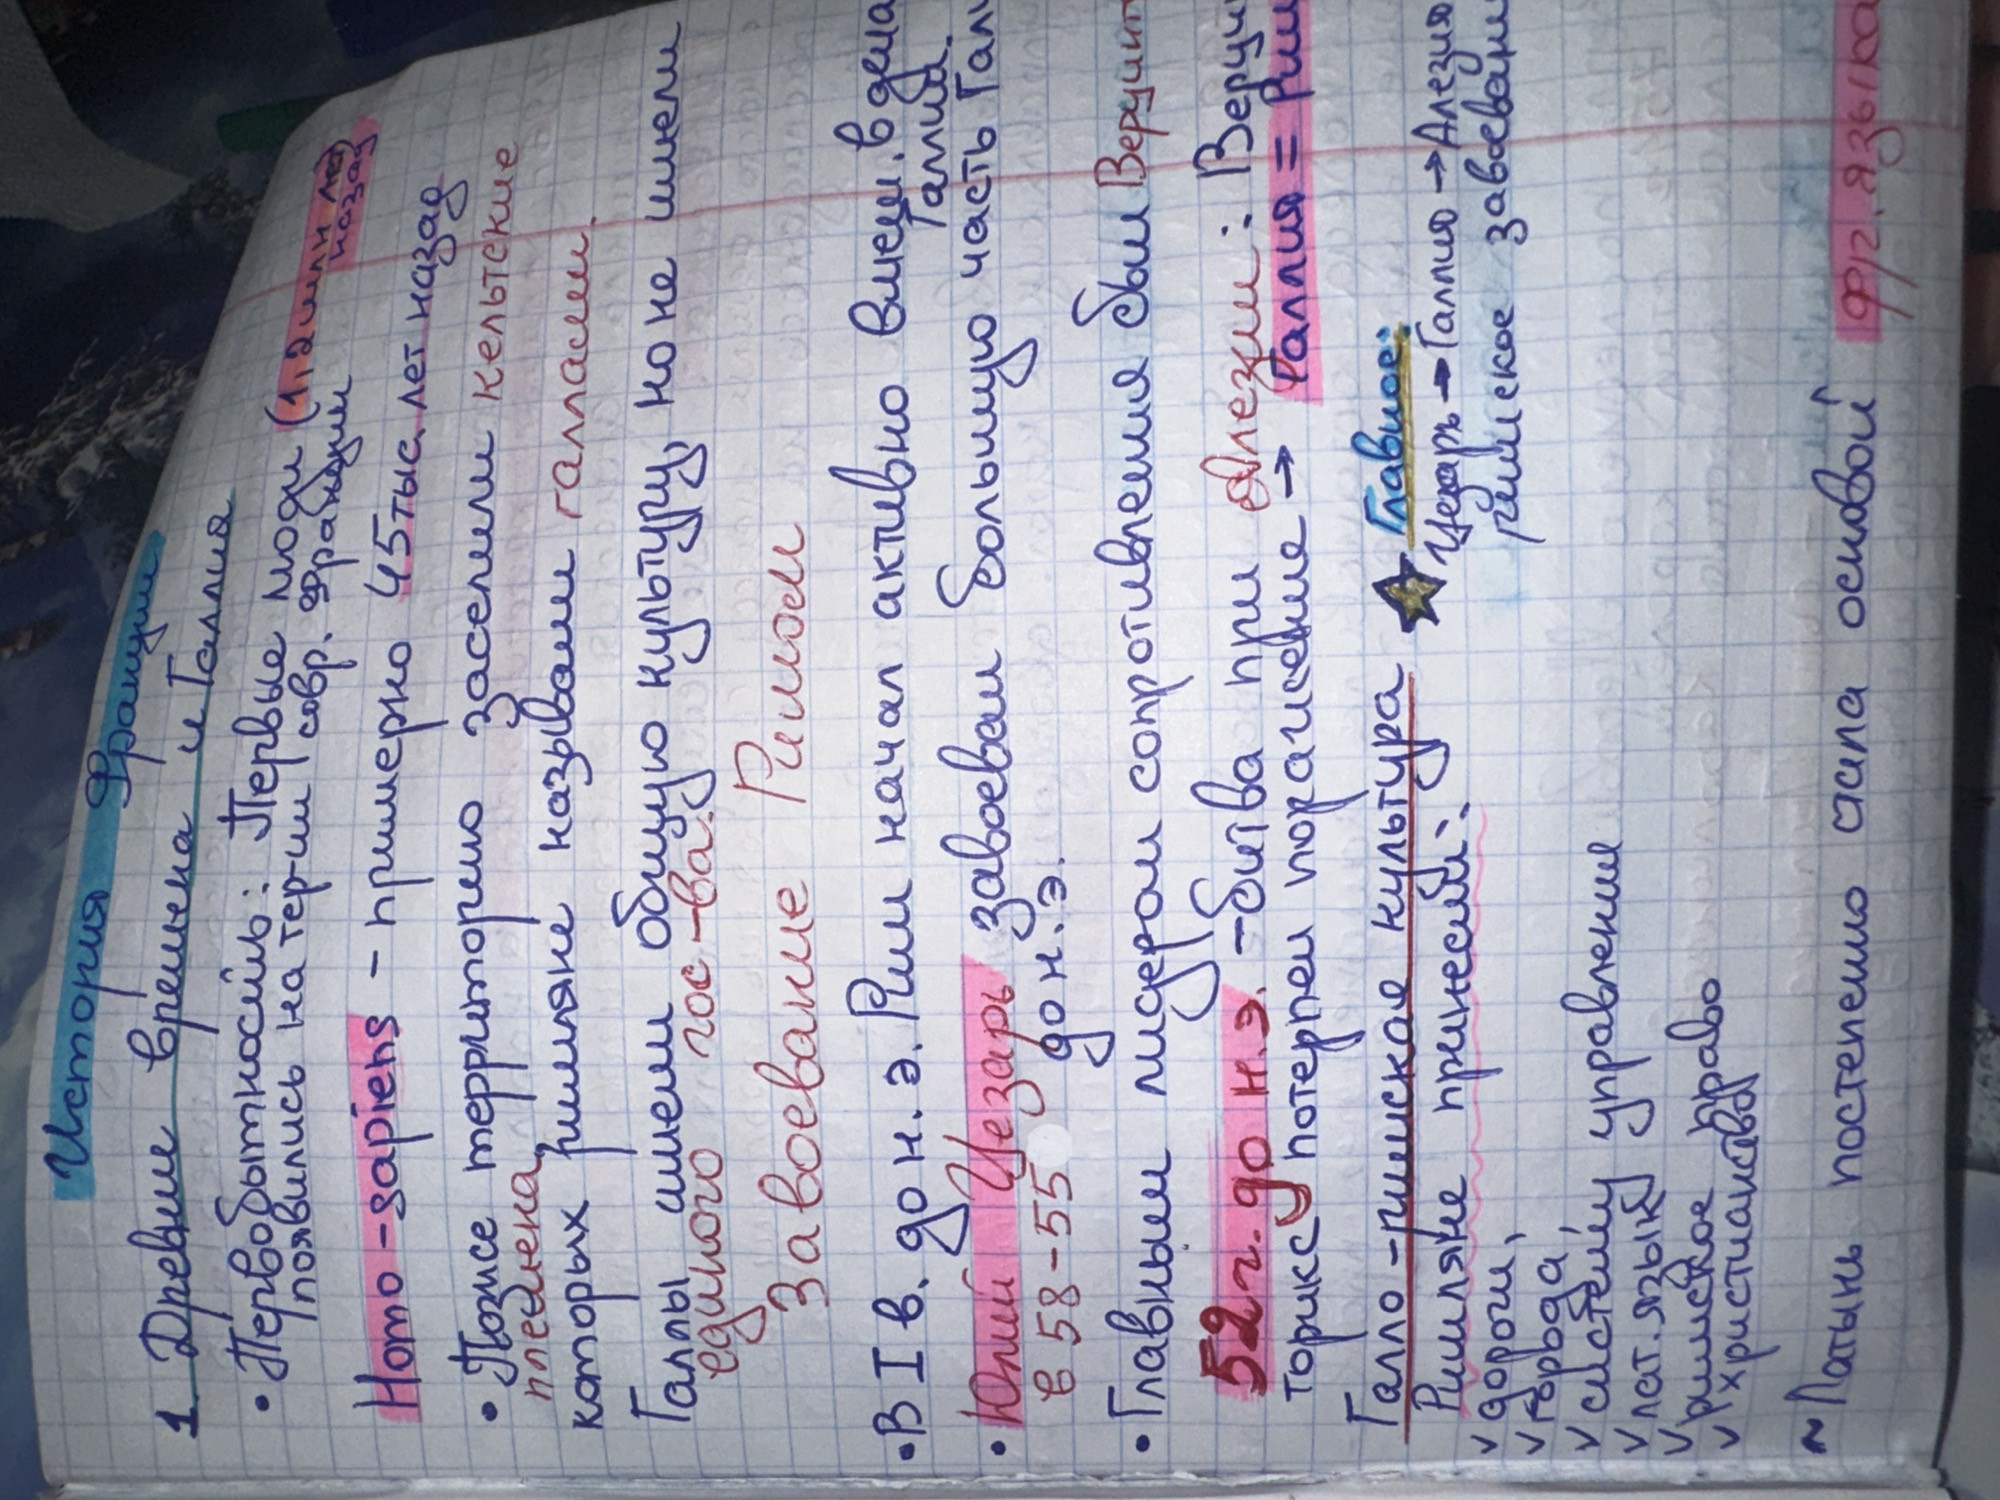 История Франции
1. Древние времена и Галлия
• Первобытность: Первые люди (1,2 млн лет назад)
появились на тер-ии совр. Франции
Homo-sapiens - примерно 45 тыс. лет назад
• Позже территорию заселили кельтские
племена, которых римляне называли галлами.
Галлы имели общую культуру, но не имели
единого гос-ва.
Завоевание Римом
• В I в. до н.э. Рим начал активно вмеш. в дела
Галлии.
• Юлий Цезарь завоевал большую часть Гал
в 58-55 до н.э.
• Главным лидером сопротивления был Верцинг
52 г. до н.э. - битва при Алезии: Верцин
торикс потерпел поражение → Галлия = Рим
Галло-римская культура
Римляне принесли:
✓ дороги,
✓ города,
✓ систему управления
✓ лат. язык
✓ римское право
✓ христианство
★ Главное:
Цезарь → Галлия → Алезия
римское завоевани
~ Латынь постепенно стала основой фр. языка